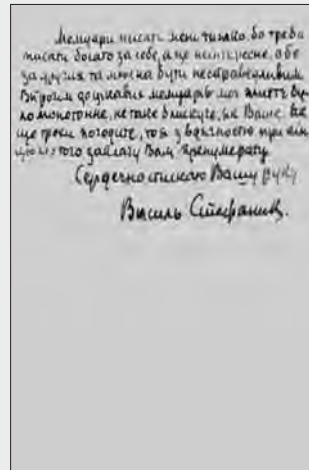 Мемуари писати мені тяжко, бо треба
писати богато за себе, а це неінтересне, або
за других та можна бути несправедливим
Впрочім до цікавих мемуарів моє життє
монотонне, не таке блискуче, як Ваше.
ще трохи погодите, то я з вдячностю при
того заплачу Вам пренумерату
Сердечно стискаю Вашу руку
Василь Стефаник.